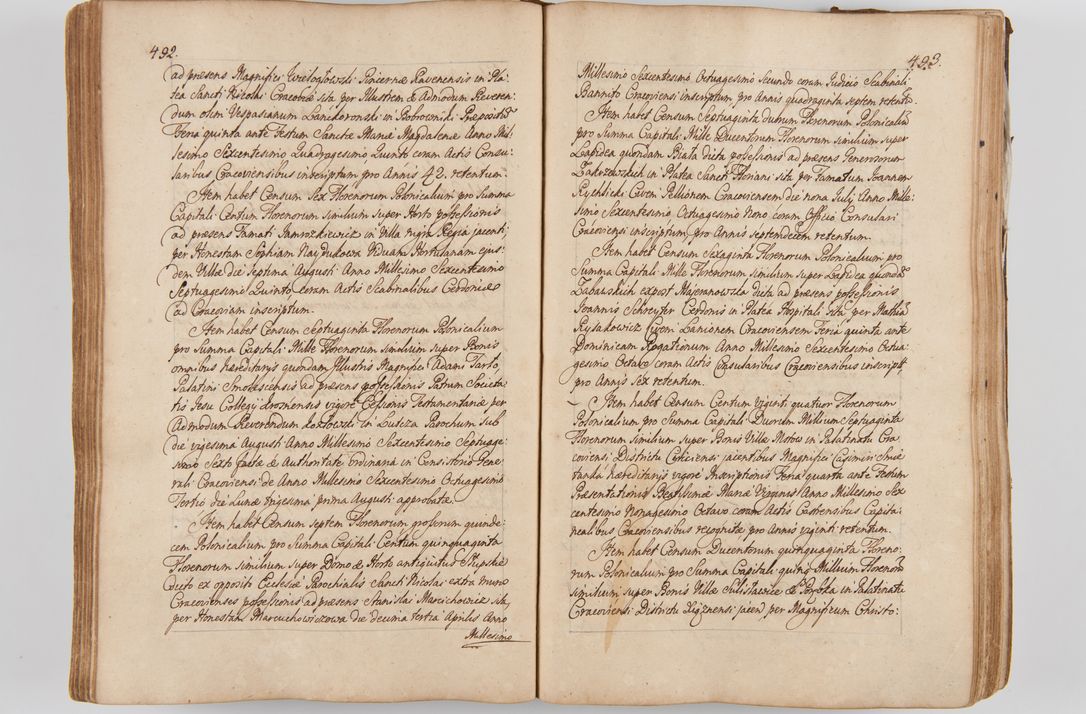 492.
ad præsens Magnifici Wielogłowski Pincernæ Ravenensis in Pla-
tea Sancti Nicolai Cracoviæ sita per Illustrem & Admodum Reveren-
dum olim Vespasianum Lanckoronski in Bobrowniki Præpositum
Feria quinta ante Festum Sanctæ Mariæ Magdalenæ Anno Mil-
lesimo Sexcentesimo Quadragesimo Quinto coram Actis Consu-
laribus Cracoviensibus inscriptum pro Annis 42. retentum.
Item habet Censum Sex Florenorum Polonicalium pro Summa
Capitali Centum Florenorum similium super Horto possessionis
ad præsens Famati Jamrozkiewicz in Villa nigra Regia jacenti
per Honestam Sophiam Naydukowa Viduam Hortulanam ejus-
dem Villæ die Septima Augusti Anno Millesimo Sexcentesimo
Septuagesimo Quinto coram Actis Scabinalibus Cerdoniæ
ad Cracoviam inscriptum.
Item habet Censum Septuaginta Florenorum Polonicalium
pro Summa Capitali Mille Florenorum similium super Bonis
omnibus hæreditarijs quondam Illustris Magnifici Adami Tarło,
Palatini Smolescensis ad præsens possessionis Patrum Societa-
tis Jesu Collegij Krosnensis vigore Cessionis Testamentariæ per
Admodum Reverendum in Parochum Sub
die vigesima Augusti Anno Millesimo Sexcentesimo Septuage-
simo Sexto factæ & Authoritate ordinaria in Consistorio Gene-
rali Cracoviensi de Anno Millesimo Sexcentesimo Octuagesimo
Tertio die Lunæ trigesima prima Augusti approbata.
Item habet Censum septem Florenorum grossorum quinde-
cem Polonicalium pro Summa Capitali Centum quinquaginta
Florenorum Similium super Domo & Horto antiquitus
dicto ex opposito Ecclesiæ Parochialis Sancti Nicolai extra muros
Cracovienses possessionis ad præsens Stanislai Marcichowicz sita,
per Honestam Marcuchowiczowa die decima tertia Aprilis Anno
Millesimo
493.
Millesimo Sexcentesimo Octuagesimo Secundo coram Judicio Scabinali
Bannito Cracoviensi inscriptum, pro Annis quadraginta septem retento.
Item habet Censum Septuaginta duorum Florenorum Polonicalium
pro Summa Capitali Mille Ducentorum Florenorum similium super
Lapidea quondam Biała dicta possessionis ad præsens Generosorum
Zakrzewskich in Platea Sancti Floriani sita per Famatum Joannem
Rychlicki Civem Pellionem Cracoviensem die nona July Anno Mille-
simo Sexcentesimo Octuagesimo Nono coram Officio Consulari
Cracoviensi inscriptum, pro Annis septemdecem retentum.
Item habet Censum Sexaginta Florenorum Polonicalium pro
Summa Capitali Mille Florenorum similium super Lapidea quondam
Zabawskich expost Majeranowska dicta ad præsens possessionis
Joannis Schreyter Cerdonis in Platea Hospitali sita per Mathiam
Rysakowicz Civem Lanionem Cracoviensem Feria quinta ante
Dominicam Rogationum Anno Millesimo Sexcentesimo Octua-
gesimo Octavo coram Actis Consularibus Cracoviensibus inscript.
pro Annis Sex retentum.
Item habet Censum Centum Viginti quatuor Florenorum
Polonicalium pro Summa Capitali Duorum Millium Septuaginta
Florenorum Similium super Bonis Villæ in Palatinatu Cra-
coviensi Districtu jacentibus Magnifici Casimiri
hæreditarijs vigore Inscriptionis Feria quarta ante Festum
Præsentationis Beatissimæ Mariæ Virginis Anno Millesimo Sex
centesimo Nonagesimo Octavo coram Actis Castrensibus Capita-
nealibus Cracoviensibus recognitæ, pro Annis viginti retentum.
Item habet Censum Ducentorum quinquaginta Floreno-
rum Polonicalium pro Summa Capitali quinq Millium Florenorum
similium super Bonis Villæ Sulisławice & Porębka in Palatinatu
Cracoviensi Districtu Xiążnensi jacen, per Magnificum Christo-